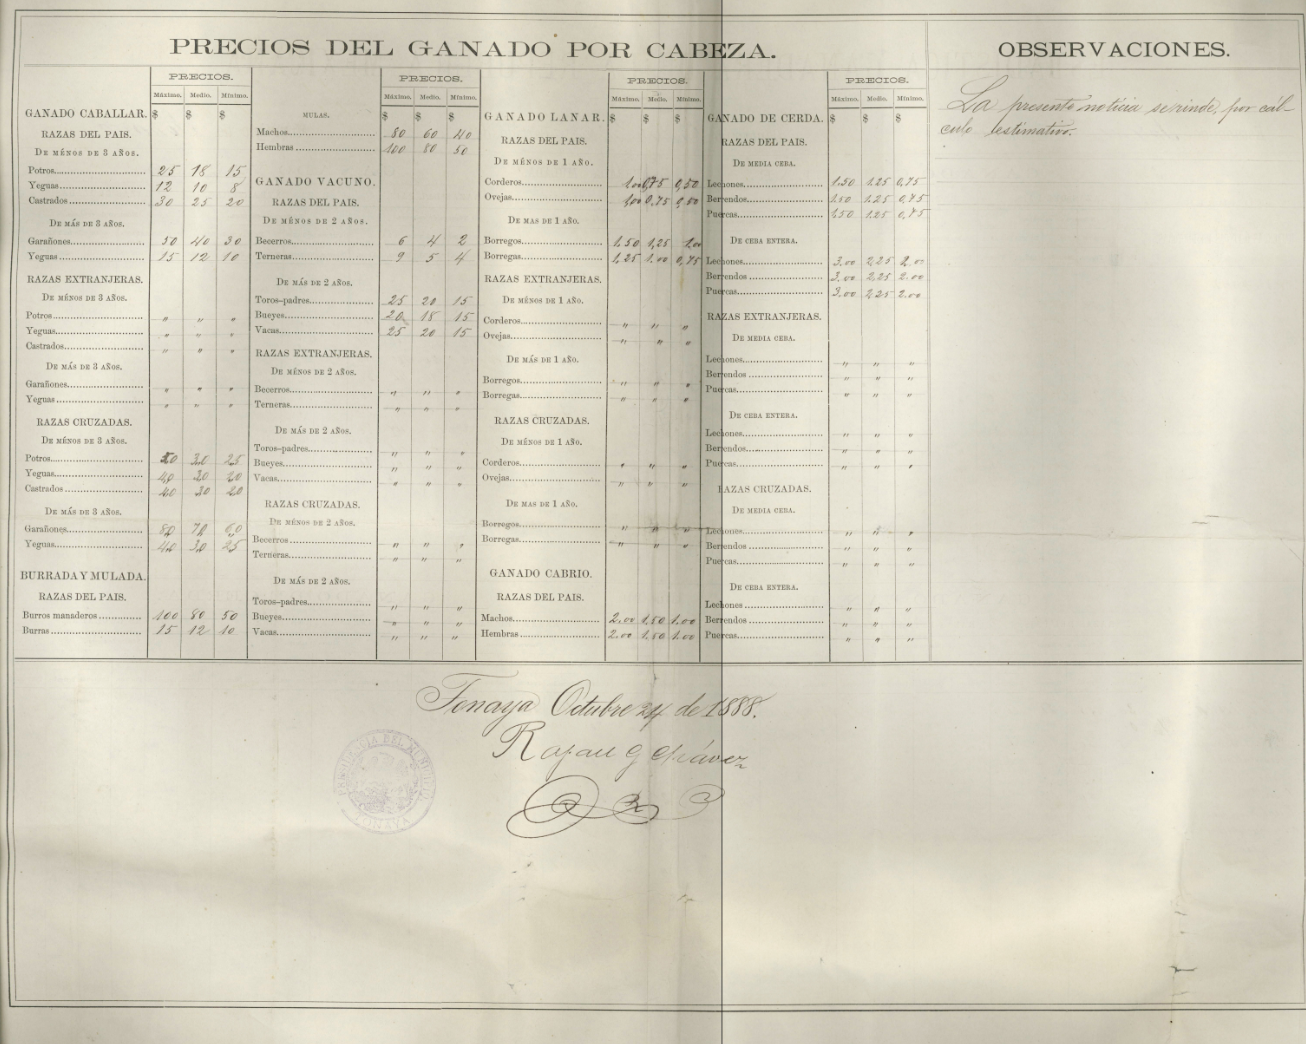 PRECIOS DEL GANADO POR CABEZA.
PRECIOS.
Máximo. Medio. Mínimo.
GANADO CABALLAR. $ $ $
RAZAS DEL PAIS.
DE MÉNOS DE 3 AÑOS.
Potros 25 18 15
Yeguas 12 10 8
Castrados 30 25 20
DE MÁS DE 3 AÑOS.
Garañones 50 40 30
Yeguas 15 12 10
RAZAS EXTRANJERAS.
DE MÉNOS DE 3 AÑOS.
Potros " " "
Yeguas " " "
Castrados " " "
DE MÁS DE 3 AÑOS.
Garañones " " "
Yeguas " " "
RAZAS CRUZADAS.
DE MÉNOS DE 3 AÑOS.
Potros 50 35 25
Yeguas 40 30 20
Castrados 40 30 20
DE MÁS DE 3 AÑOS.
Garañones 80 70 60
Yeguas 40 30 25
BURRADA Y MULADA.
RAZAS DEL PAIS.
Burros manaderos 100 80 50
Burras 15 12 10
PRECIOS.
Máximo. Medio. Mínimo.
MULAS. $ $ $
Machos 80 60 40
Hembras 100 80 50
GANADO VACUNO.
RAZAS DEL PAIS.
DE MÉNOS DE 2 AÑOS.
Becerros 6 4 2
Terneras 9 5 4
DE MÁS DE 2 AÑOS.
Toros-padres 25 20 15
Bueyes 20 18 15
Vacas 25 20 15
RAZAS EXTRANJERAS.
DE MÉNOS DE 2 AÑOS.
Becerros " " "
Terneras " " "
DE MÁS DE 2 AÑOS.
Toros-padres " " "
Bueyes " " "
Vacas " " "
RAZAS CRUZADAS.
DE MÉNOS DE 2 AÑOS.
Becerros " " "
Terneras " " "
DE MÁS DE 2 AÑOS.
Toros-padres " " "
Bueyes " " "
Vacas " " "
PRECIOS.
Máximo. Medio. Mínimo.
GANADO LANAR. $ $ $
RAZAS DEL PAIS.
DE MÉNOS DE 1 AÑO.
Corderos 1,00 0,75 0,50
Ovejas 1,00 0,75
DE MAS DE 1 AÑO.
Borregos 1,50 1,25 1,00
Borregas 1,25 1.00 0,75
RAZAS EXTRANJERAS.
DE MÉNOS DE 1 AÑO.
Corderos " " "
Ovejas " " "
DE MÁS DE 1 AÑO.
Borregos " " "
Borregas " " "
RAZAS CRUZADAS.
DE MÉNOS DE 1 AÑO.
Corderos " " "
Ovejas " " "
DE MAS DE 1 AÑO.
Borregos " " "
Borregas " " "
GANADO CABRIO.
RAZAS DEL PAIS.
Machos 2.00 1,50 1.00
Hembras 2.00 1.50 1.00
PRECIOS.
Máximo. Medio. Mínimo.
GANADO DE CERDA. $ $ $
RAZAS DEL PAIS.
DE MEDIA CEBA.
Lechones 1.50 1.25 0,75
Berrendos 1.50 1.25 0,75
Puercas 1.50 1.25 0,75
DE CEBA ENTERA.
Lechones 3.00 2,25 2.00
Berrendos 3.00 2,25 2.00
Puercas 3.00 2,25 2.00
RAZAS EXTRANJERAS.
DE MEDIA CEBA.
Lechones " " "
Berrendos " " "
Puercas " " "
DE CEBA ENTERA.
Lechones " " "
Berrendos " " "
Puercas " " "
RAZAS CRUZADAS.
DE MEDIA CEBA.
Lechones " " "
Berrendos " " "
Puercas " " "
DE CEBA ENTERA.
Lechones " " "
Berrendos " " "
Puercas " " "
OBSERVACIONES.
La presente noticia se rinde, por cál-
culo estimativo.
Tonaya Octubre 24 de 1888.
Rafael G Chávez
PRESIDENCIA DEL MUNICIPIO
TONAYA